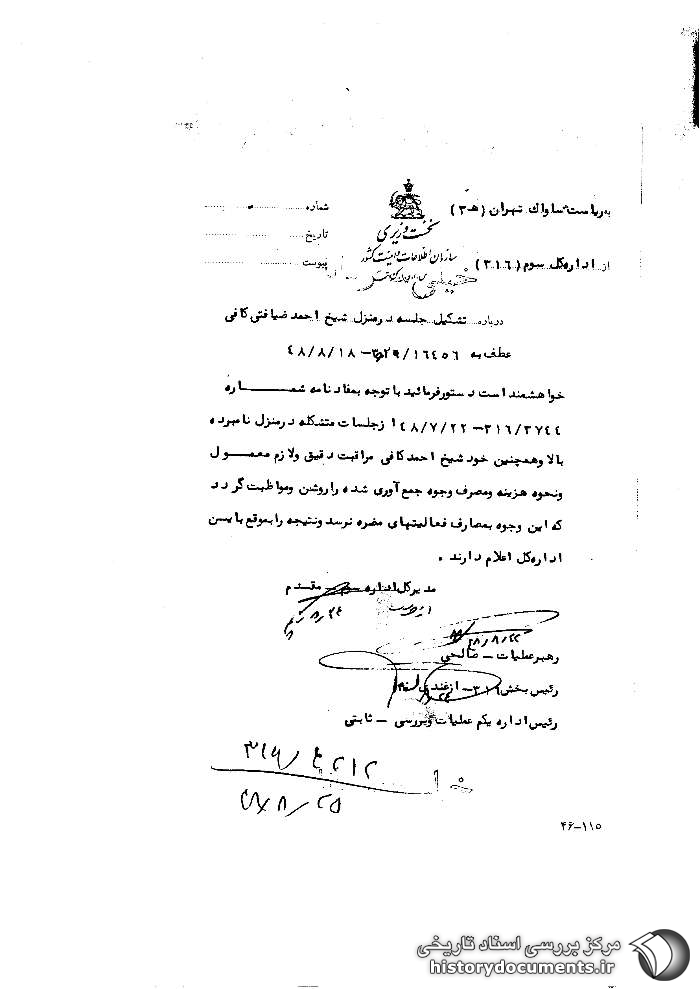 به ریاست ساواک تهران (ه‍ ۳)
شماره
نخست وزیری
تاریخ
سازمان اطلاعات و امنیت کشور
از اداره کل سوم (۳۱۶)
پیوست
درباره تشکیل جلسه در منزل شیخ احمد ضیافتی کافی
عطف به ۱۶۴۵۶/ –۴۸/۸/۱۸
خواهشمند است دستور فرمائید با توجه بمفاد نامه شماره
۳۱۶/۳۷۴۴–۴۸/۷/۲۲ از جلسات متشکله در منزل نامبرده
بالا وهمچنین خود شیخ احمد کافی مراقبت دقیق ولازم معمول
ونحوه هزینه ومصرف وجوه جمع آوری شده را روشن ومواظبت گردد
که این وجوه بمصارف فعالیتهای مضره نرسد ونتیجه را بموقع باین
اداره کل اعلام دارند .
مدیر کل اداره سوم – مقدم
۴۸/۸/۲۲
رهبر عملیات – صالحی
رئیس بخش ۳۱۶ – ازغندی
رئیس اداره یکم عملیات و بررسی – ثابتی
۳۱۶/۴۲۱۲
۴۸/۸/۲۵
۴۶–۱۱۵
مرکز بررسی اسناد تاریخی
historydocuments.ir